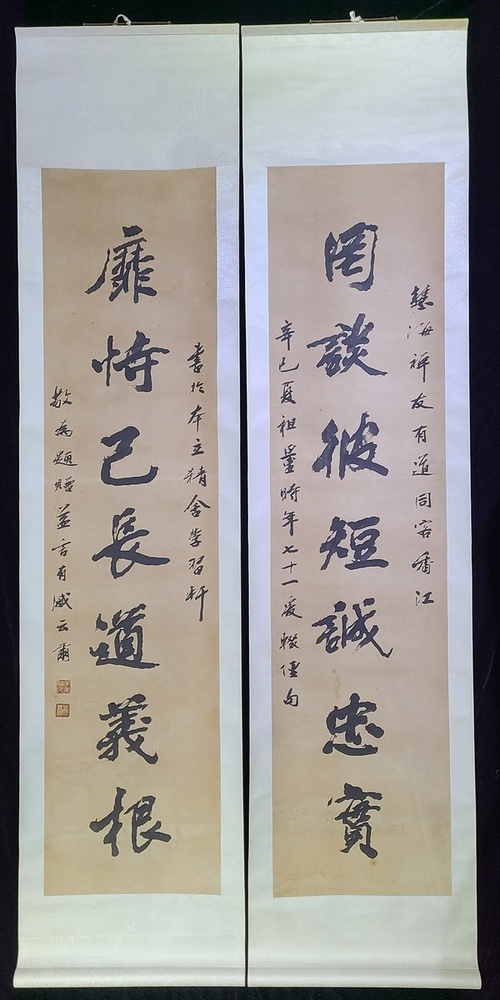 慧海禪友有道同客香江
罔談彼短誠忠實
辛巳夏祖量時年七十一爰輟俚句
書於本立精舍學習軒
靡恃己長道義根
敬為題贈並言有感云爾